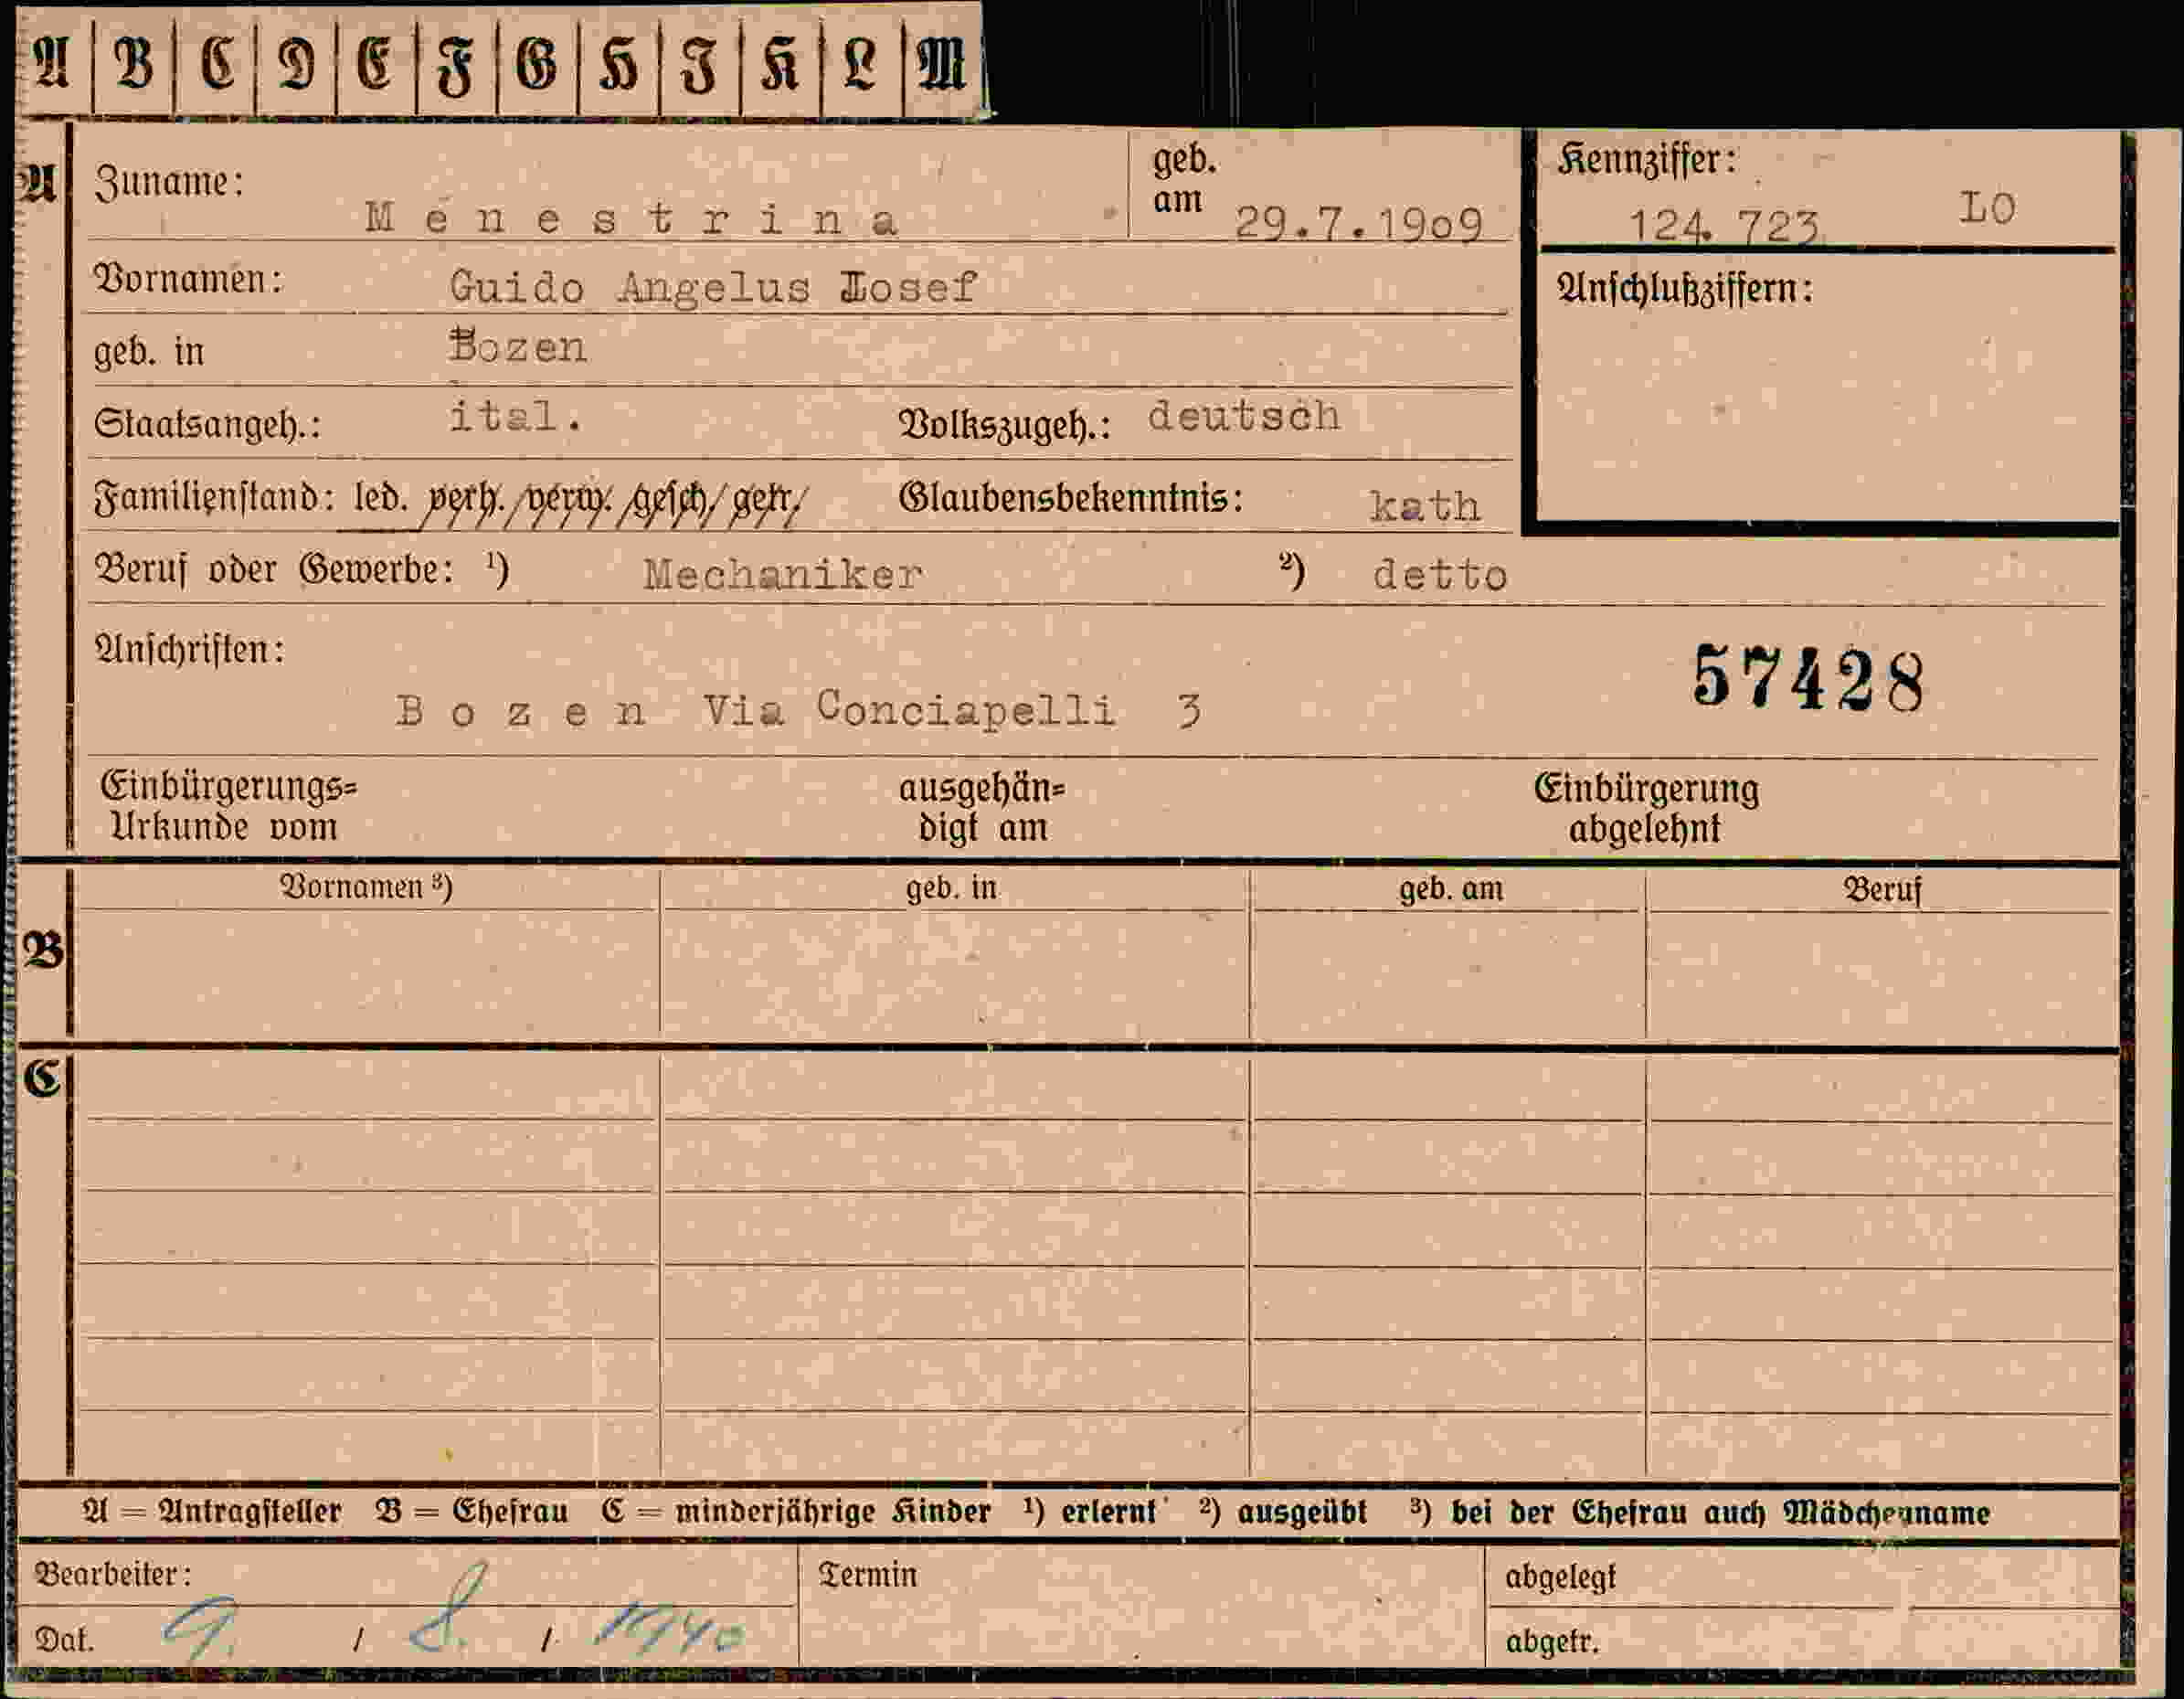 A B C D E F G H I K L M
A Zuname: Menestrina geb. am 29.7.1909 Kennziffer: 124.723 LO
Vornamen: Guido Angelus Iosef Anschlußziffern:
geb. in Bozen
Staatsangeh.: ital. Volkszugeh.: deutsch
Familienstand: led. verh./verw./gesch/getr/ Glaubensbekenntnis: kath
Beruf oder Gewerbe: ¹) Mechaniker ²) detto
Anschriften: 57428
Bozen Via Conciapelli 3
Einbürgerungs= ausgehän= Einbürgerung
Urkunde vom digt am abgelehnt
Vornamen ³) geb. in geb. am Beruf
B
C
A = Antragsteller B = Ehefrau C = minderjährige Kinder ¹) erlernt ²) ausgeübt ³) bei der Ehefrau auch Mädchenname
Bearbeiter: Termin abgelegt
Dat. 9. / 8. / 1940 abgetr.